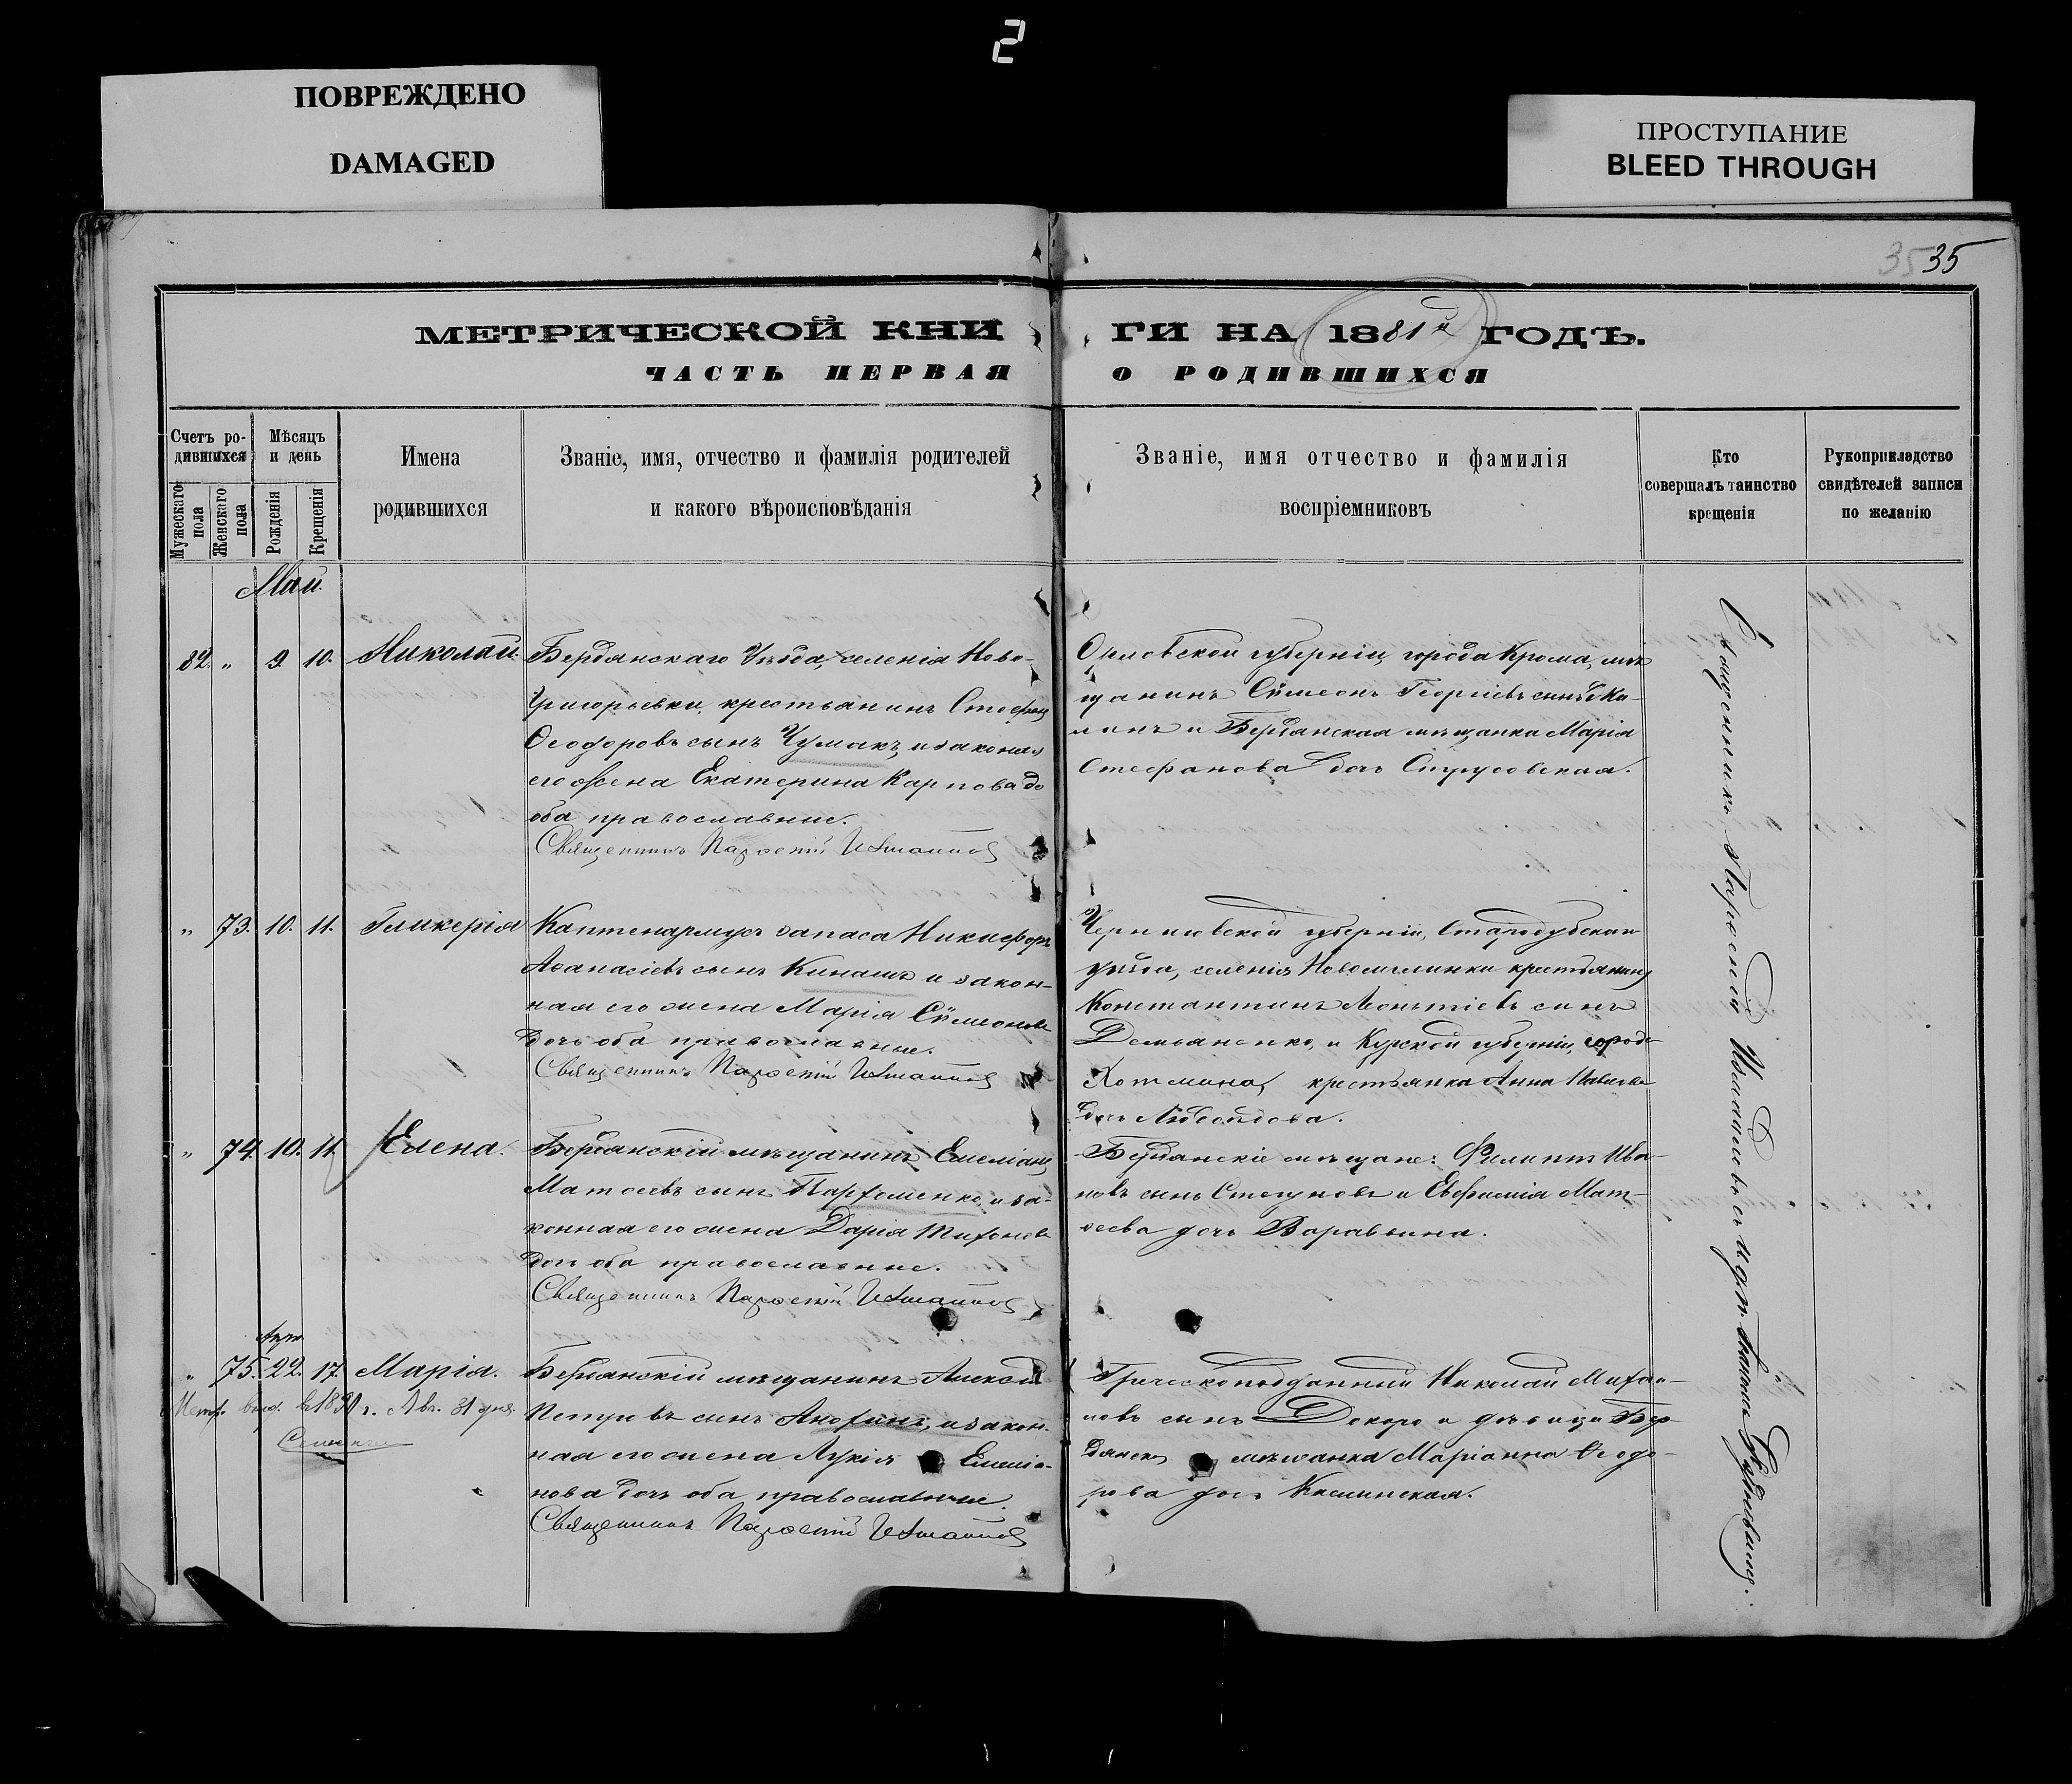 2
ПОВРЕЖДЕНО
DAMAGED
ПРОСТУПАНИЕ
BLEED THROUGH
35 35
МЕТРИЧЕСКОЙ КНИГИ НА 1881й ГОДЪ.
ЧАСТЬ ПЕРВАЯ О РОДИВШИХСЯ
Счетъ ро-
дившихся
Мужескаго пола
Женскаго пола
Мѣсяцъ
и день
Рожденія
Крещенія
Имена
родившихся
Званіе, имя, отчество и фамилія родителей
и какого вѣроисповѣданія
Званіе, имя отчество и фамилія
воспріемниковъ
Кто
совершалъ таинство
крещенія
Рукоприкладство
свидѣтелей записи
по желанію
Май.
82. „ 9. 10. Николай.
Бердянскаго Уѣзда, селенія Ново-
Григорьевки, крестьянинъ Стефанъ
Ѳеодоровъ сынъ Чумакъ, и законая
его жена Екатерина Карпова до
оба православные.
Священникъ
Орловской губерніи, города Крома, мѣ
щанинъ Сѵмеонъ Георгіевъ сынъ
и Бердянская мѣщанка Марія
Стефанова дочь Струсовская.
„ 73. 10. 11. Гликерія
Каптенармусъ запаса Никифоръ
Аѳанасіевъ сынъ Кинашъ и закон-
ная его жена Марія Сѵмеонова
дочь оба православные.
Священникъ
Черниговской губерніи, Стародубскаго
уѣзда, селенія крестьянинъ
Константинъ Леонтіевъ сынъ
Демьяненко, и Курской губерніи, города
Хотмина, крестьянка Анна
дочь
„ 74. 10. 11. Елена.
Бердянскій мѣщанинъ Емеліанъ
Матѳеевъ сынъ Пархоменко, и за-
конная его жена Дарія Тихонова
дочь оба православные.
Священникъ
Бердянскіе мѣщане: Филиппъ Ива-
новъ сынъ и Евфимія Мат-
ѳеева дочь Варавина.
Апр.
„ 75. 22. 17. Марія.
Метр. выд. въ 1890 г. Авг. 31 дня.
Бердянскій мѣщанинъ Алексѣй
Петровъ сынъ Анохинъ, и закон-
ная его жена Лукія Емеліа-
нова дочь оба православные.
Священникъ
Греческоподданный Николай Михаи-
ловъ сынъ и дѣвица Бер
дянская мѣщанка Маріанна Ѳеодо-
рова дочь Каминская.
Священникъ